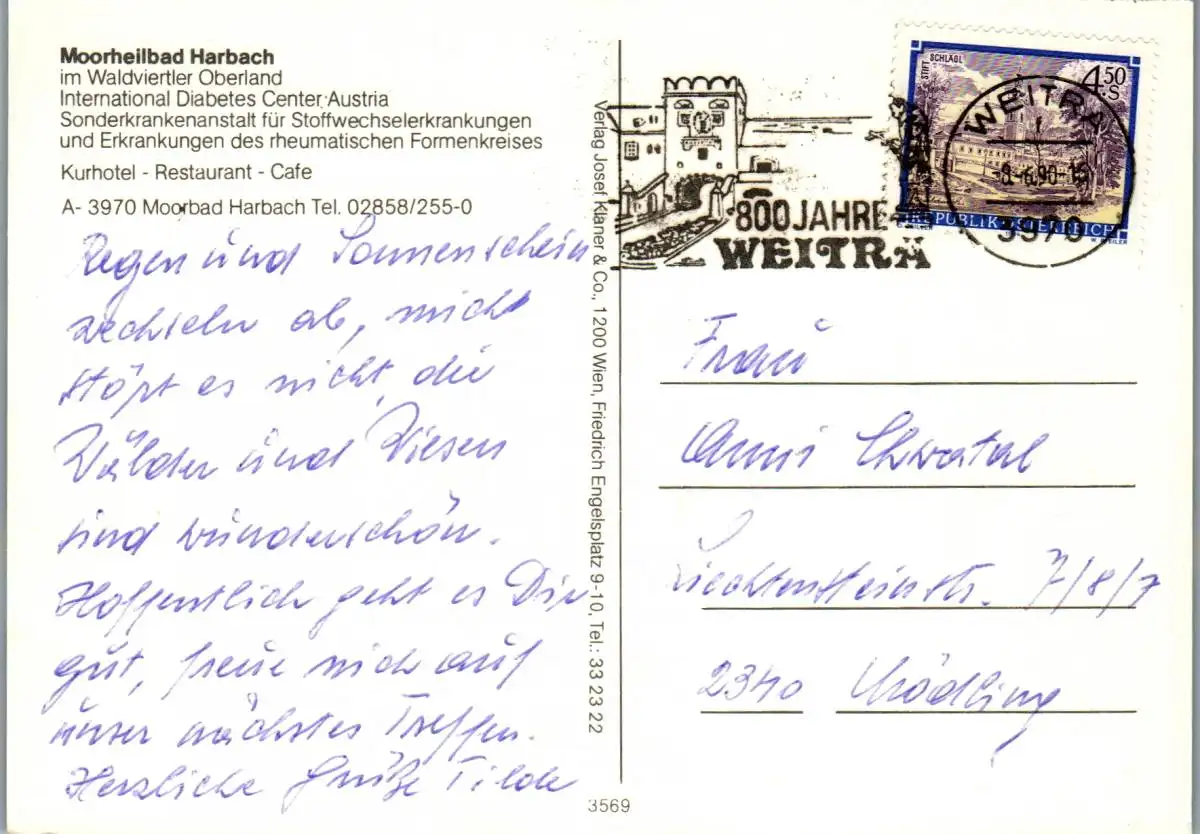 Moorheilbad Harbach
im Waldviertler Oberland
International Diabetes Center Austria
Sonderkrankenanstalt für Stoffwechselerkrankungen
und Erkrankungen des rheumatischen Formenkreises
Kurhotel - Restaurant - Cafe
A- 3970 Moorbad Harbach Tel. 02858/255-0
Regen und Sonnenschein
wechseln ab, mich
stört es nicht, die
Wälder und Wiesen
sind wunderschön.
Hoffentlich geht es Dir
gut, freue mich auf
unser nächstes Treffen.
Herzliche Grüße Tilde
Verlag Josef Klaner & Co., 1200 Wien, Friedrich Engelsplatz 9-10, Tel.: 33 23 22
3569
800 JAHRE
WEITRA
STIFT SCHLÄGL
4.50
S
REPUBLIK ÖSTERREICH
WEITRA
-6.90-15
3970
Frau
Anni Chvatal
Liechtensteinstr. 7/8/7
2340 Mödling